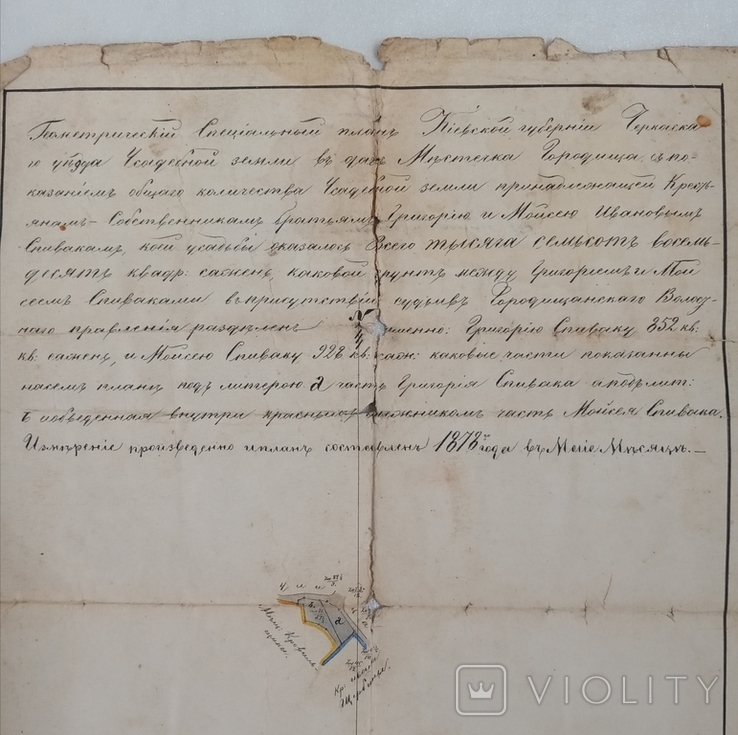 Геометрическій Спеціальный планъ Кіевской губерніи Черкаска
го уѣзда Усадебной земли въ дачѣ Мѣстечка Городища, съ по-
казаніемъ общаго количества Усадебной земли принадлежащей Кресть-
янамъ-Собственникамъ братьямъ Григорію и Мойсею Ивановымъ
Спивакамъ, кой усадьбы оказалось Всего тысяга семьсотъ восемь-
десятъ квадр: саженъ, каковой грунтъ между Григоріемъ и Мой
сеемъ Спиваками въ присутствіи судьивъ Городищанскаго Волост-
наго правленія раздѣленъ именно: Григорію Спиваку 852 кв:
кв. саженъ, и Мойсею Спиваку 928 кв. саж: каковые части показанны
насемъ планѣ подъ литерою а часть Григорія Спивака а подъ лит:
Б обведенная внутри краснымъ часть Мойсея Спивака.
Измѣреніе произведенно и планъ составленъ 1878 года въ Меіе Мѣсяцѣ.—
а
Кр.
VIOLITY